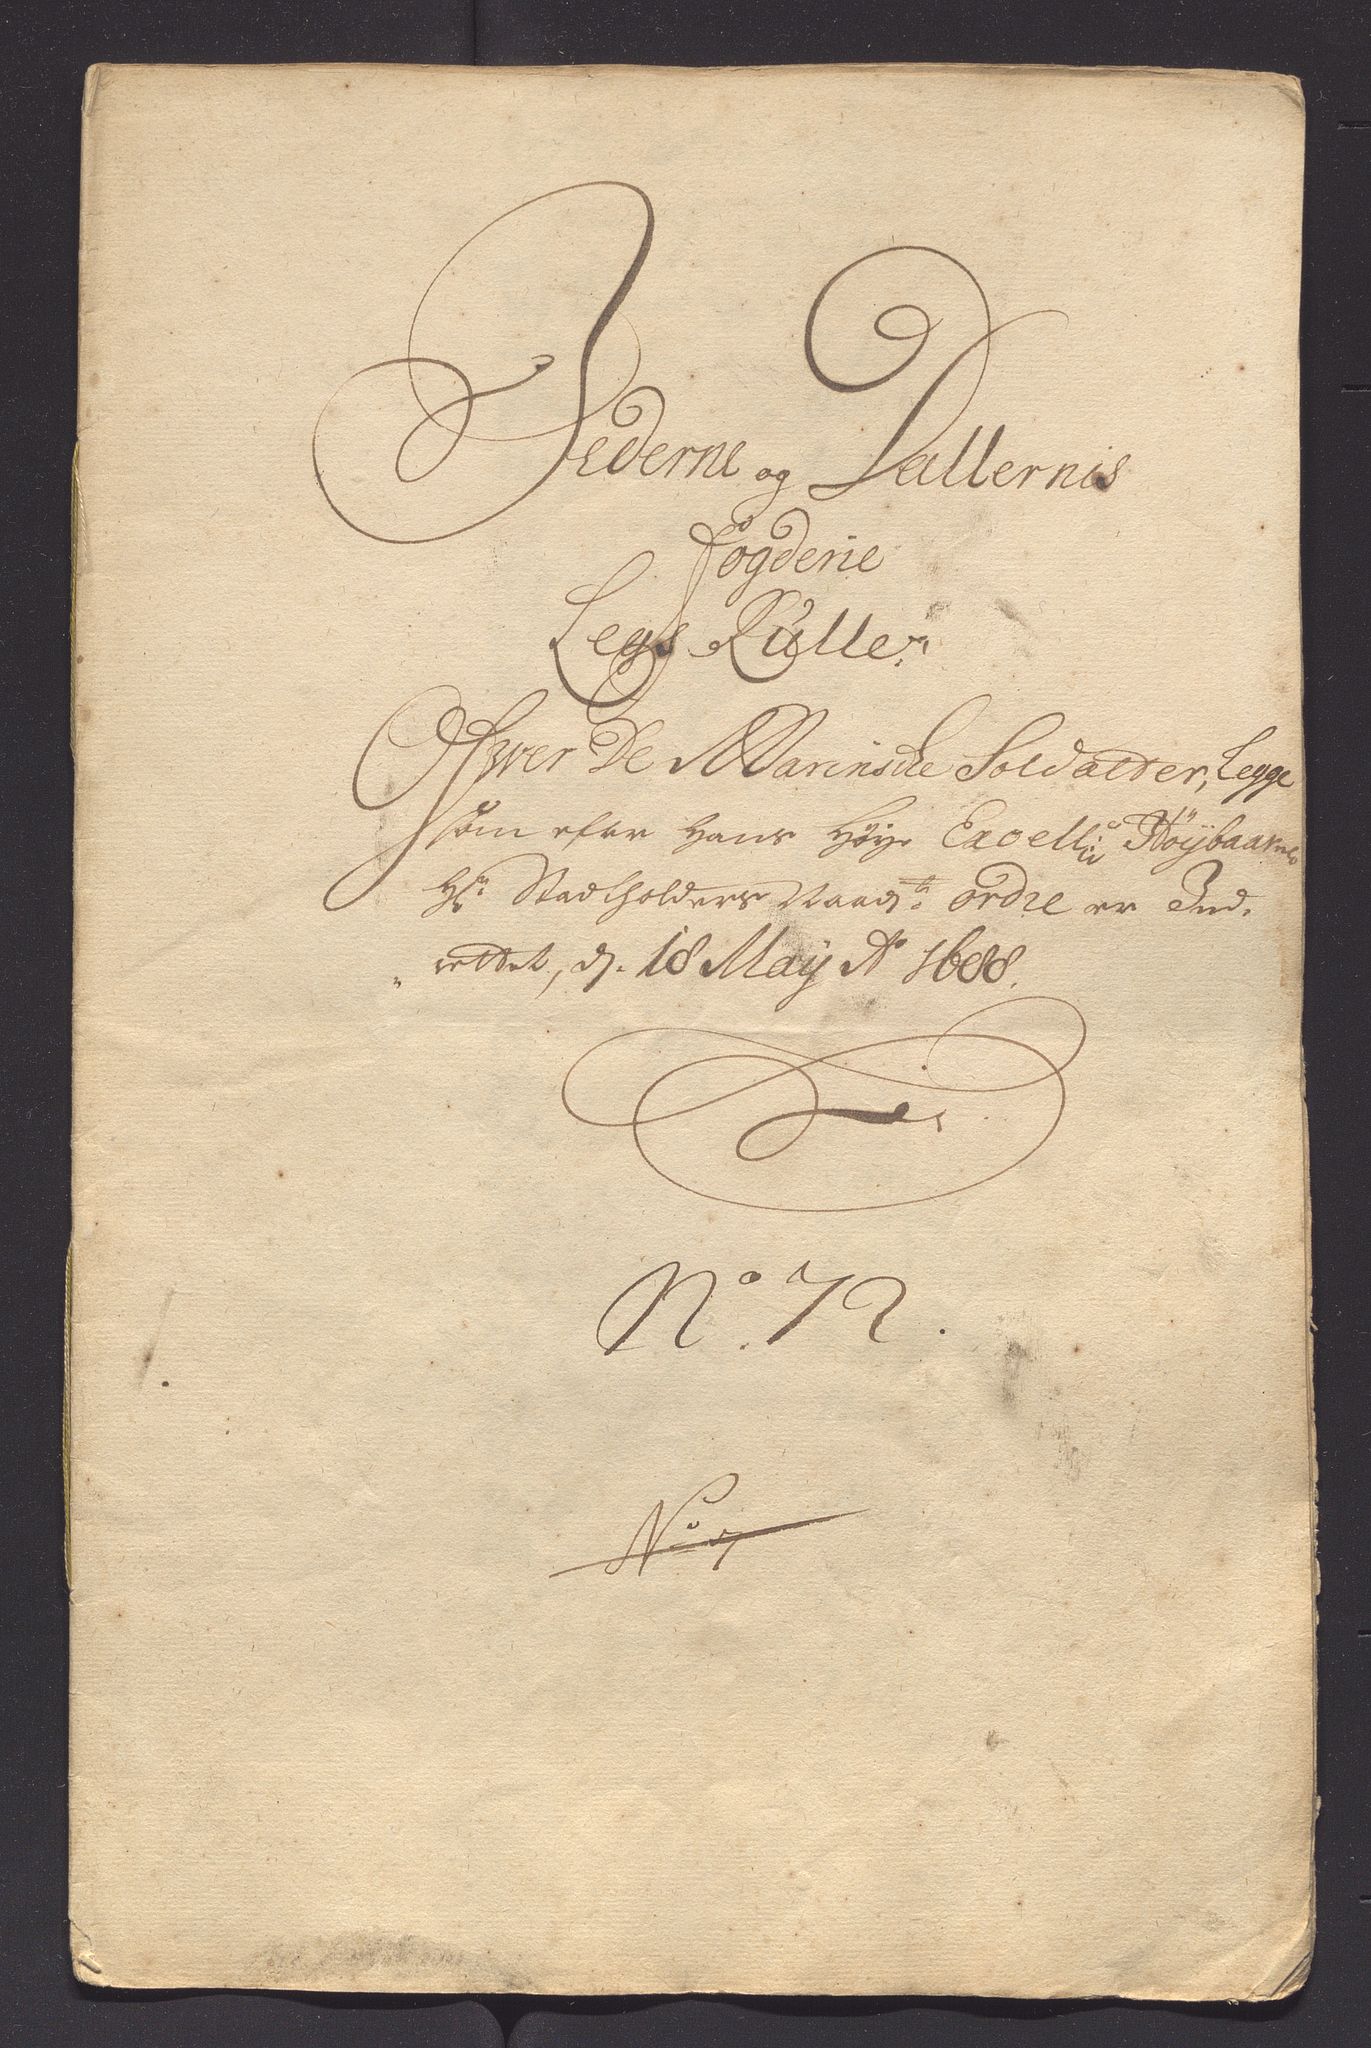 Jederne og Dallernis
fogderie
Legs Rulle
Ofwer De Marinsche Soldatter, Legge
som efter Hans Høye Excell: Høijbaarne
Hr: Stadtholders Naad: ordre er Ind-
rettet, d. 18 Maij Ao 1688.
No. 72.
No. 7